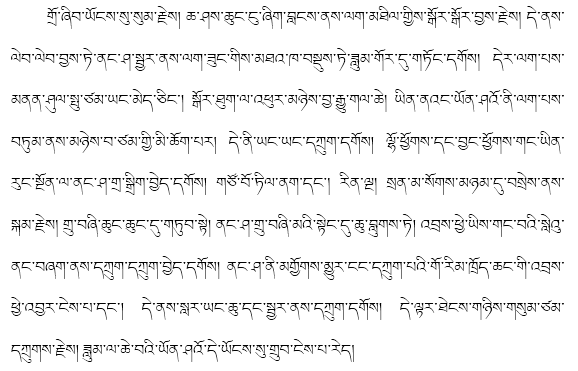 གྲོ་ཞིབ་ཡོངས་སུ་སུམ་རྗེས། ཆ་ཤས་ཆུང་ངུ་ཞིག་བླངས་ནས་ལག་མཐིལ་གྱིས་སྒོར་སྒོར་བྱས་རྗེས། དེ་ནས་
ལེབ་ལེབ་བྱས་ཏེ་ནང་ཤ་སྦྱར་ནས་ལག་ཟུང་གིས་མཐའ་ཁ་བསྡུས་ཏེ་ཟླུམ་གོར་དུ་གཏོང་དགོས། དེར་ལག་པས་
མནན་ཤུལ་སྤུ་ཙམ་ཡང་མེད་ཅིང་། སྒོར་ཐུག་ལ་འཕུར་མཉེས་བྱ་རྒྱུ་གལ་ཆེ། ཡིན་ནའང་ཡོན་ཤའོ་ནི་ལག་པས་
བཏུམ་ནས་མཉེས་བ་ཙམ་གྱི་མི་ཆོག་པར། དེ་ནི་ཡང་ཡང་དཀྲུག་དགོས། ལྷོ་ཕྱོགས་དང་བྱང་ཕྱོགས་གང་ཡིན་
རུང་སྔོན་ལ་ནང་ཤ་གྲ་སྒྲིག་བྱེད་དགོས། གཙོ་བོ་ཏིལ་ནག་དང་། རིན་ལྔ། སྲན་མ་སོགས་མཉམ་དུ་བསྲེས་ནས་
སྐམ་རྗེས། གྲུ་བཞི་ཆུང་ཆུང་དུ་གཏུབ་སྟེ། ནང་ཤ་གྲུ་བཞི་མའི་སྟེང་དུ་ཆུ་བླུགས་ཏེ། འབྲས་ཕྱེ་ཡིས་གང་བའི་སླེའུ་
ནང་བཞག་ནས་དཀྲུག་དཀྲུག་བྱེད་དགོས། ནང་ཤ་ནི་མགྱོགས་མྱུར་ངང་དཀྲུག་པའི་གོ་རིམ་ཁྲོད་ཆང་གི་འབྲས་
ཕྱེ་འབྱར་ངེས་པ་དང་། དེ་ནས་སླར་ཡང་ཆུ་དང་སྦྱར་ནས་དཀྲུག་དགོས། དེ་ལྟར་ཐེངས་གཉིས་གསུམ་ཙམ་
དཀྲུགས་རྗེས། ཟླུམ་ལ་ཆེ་བའི་ཡོན་ཤའོ་དེ་ཡོངས་སུ་གྲུབ་ངེས་པ་རེད།